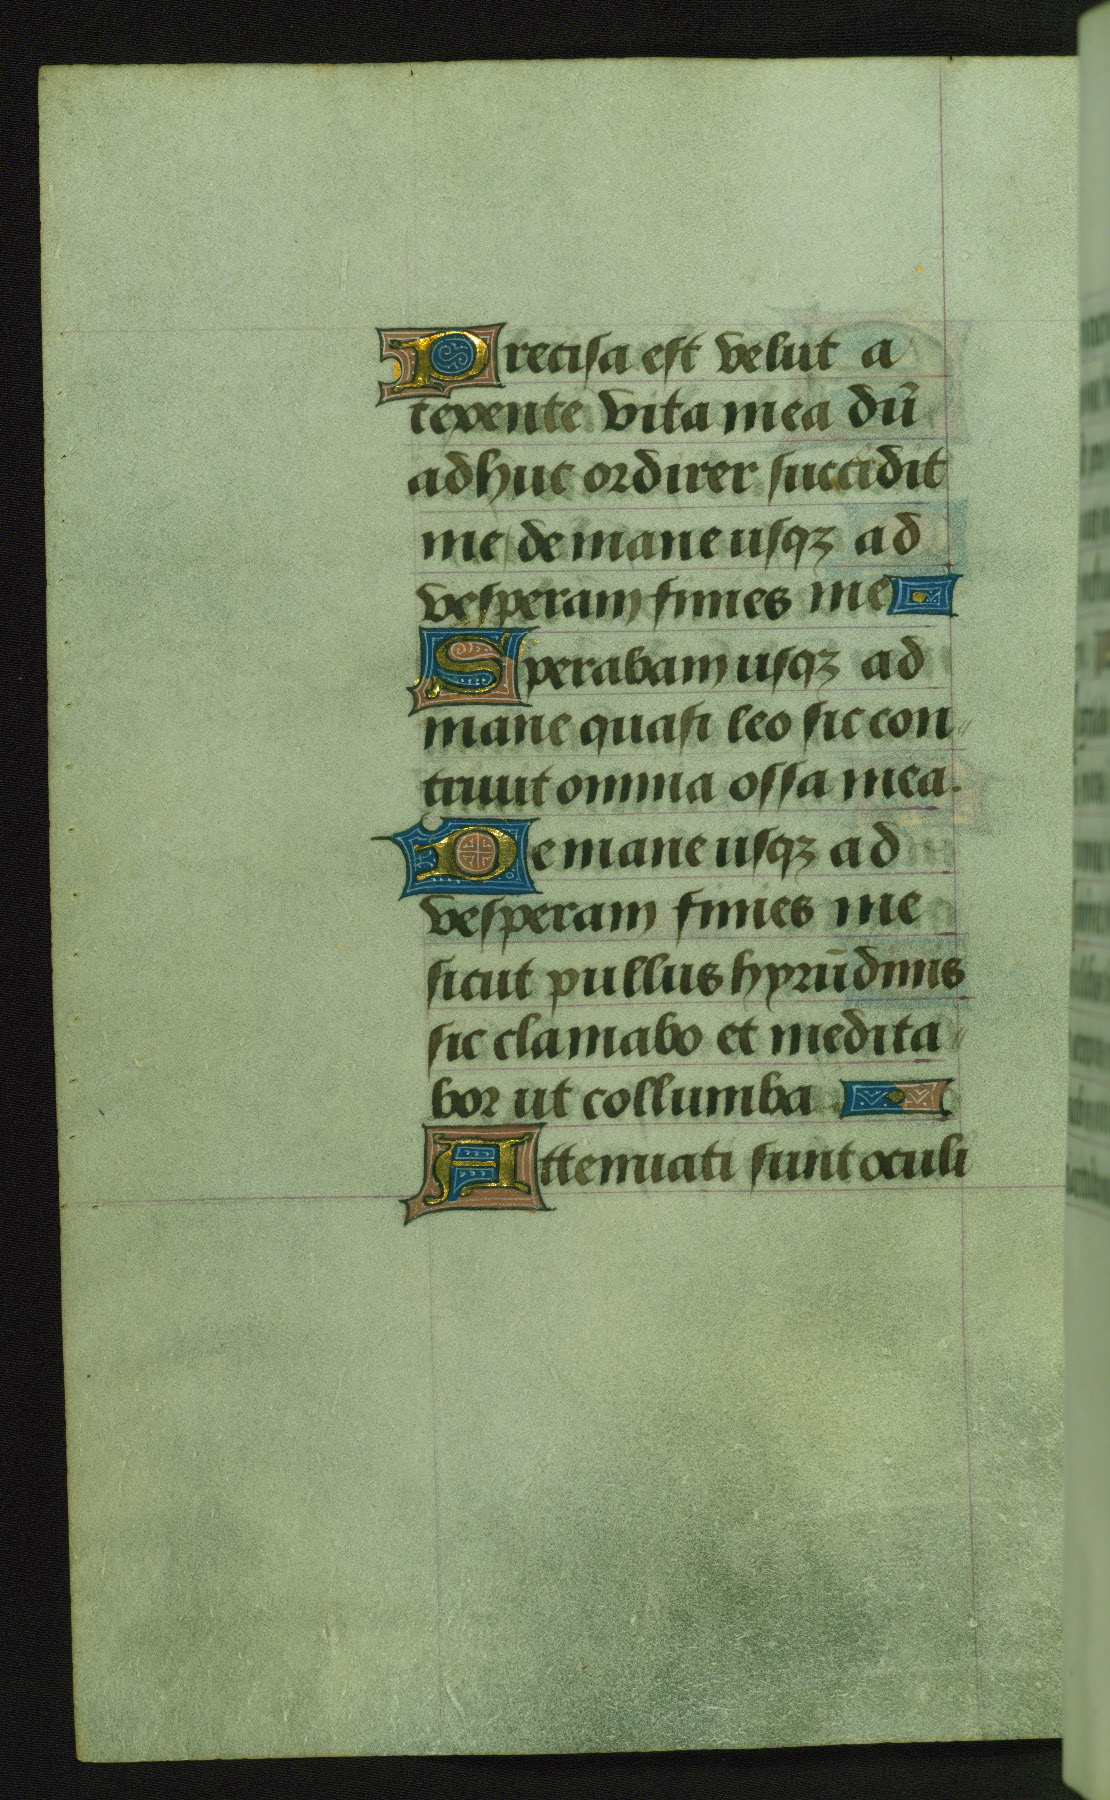 Precisa est velut a
texente vita mea dū
adhuc ordirer succidit
me de mane usqꝫ ad
vesperam finies me
Sperabam usqꝫ ad
mane quasi leo sic con〃
trivit omnia ossa mea.
De mane usqꝫ ad
vesperam finies me
sicut pullus hyrūdinis
sic clamabo et medita〃
bor ut collumba
Attenuati sunt oculi